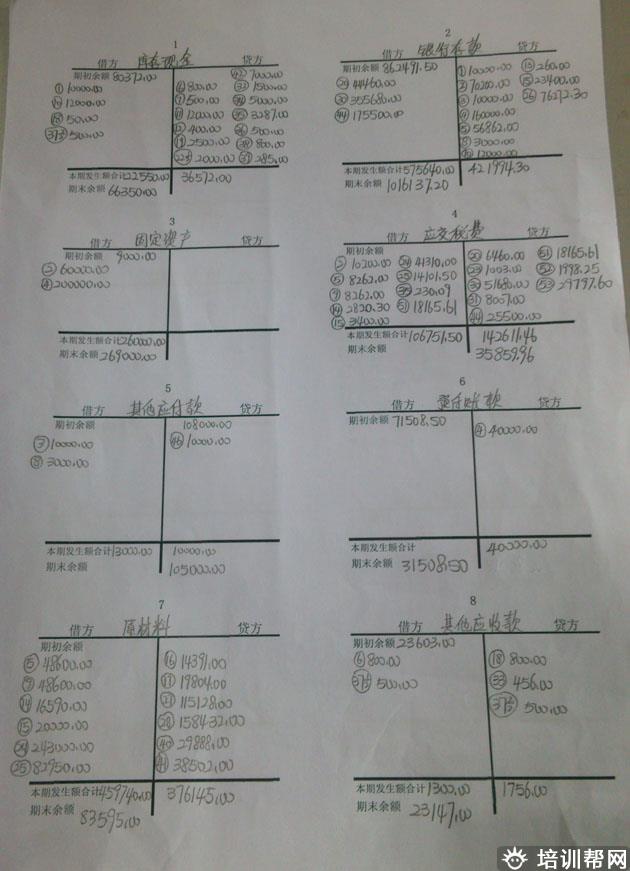 1
借方 库存现金 贷方
期初余额 80372.00
① 10000.00 ⑥ 800.00 7000.00
12000.00 ⑦ 500.00 1500.00
⑱ 50.00 12000.00 5000.00
500.00 400.00 3287.00
2500.00 500.00
2000.00 800.00
285.00
本期发生额合计22550.00 36572.00
期末余额 66350.00
2
借方 银行存款 贷方
期初余额 862491.50
44460.00 ① 10000.00 ⑬ 260.00
355680.00 ② 70200.00 ⑮ 23400.00
175500.00 ③ 10000.00 76272.30
④ 160000.00
⑤ 56862.00
⑧ 3000.00
12000.00
本期发生额合计575640.00 421994.30
期末余额 1016137.20
3
借方 固定资产 贷方
期初余额 9000.00
② 60000.00
④ 200000.00
本期发生额合计260000.00
期末余额 269000.00
4
借方 应交税费 贷方
期初余额
② 10200.00 41310.00 6460.00 18165.61
⑤ 8262.00 14101.50 1003.00 1998.25
⑨ 8262.00 230.09 51680.00 29797.60
⑭ 2820.30 18165.61 8007.00
⑮ 3400.00 25500.00
本期发生额合计106751.50 142611.46
期末余额 35859.96
5
借方 其他应付款 贷方
期初余额 108000.00
③ 10000.00 10000.00
⑧ 3000.00
本期发生额合计13000.00 10000.00
期末余额 105000.00
6
借方 预付账款 贷方
期初余额 71508.50
④ 40000.00
本期发生额合计 40000.00
期末余额 31508.50
7
借方 原材料 贷方
期初余额
⑤ 48600.00 ⑯ 14391.00
⑨ 48600.00 ⑰ 19804.00
⑭ 16590.00 115128.00
⑮ 20000.00 158432.00
243000.00 29888.00
82950.00 38502.00
本期发生额合计459740.00 376145.00
期末余额 83595.00
8
借方 其他应收款 贷方
期初余额 23603.00
⑥ 800.00 ⑱ 800.00
500.00 456.00
500.00
本期发生额合计1300.00 1756.00
期末余额 23147.00
培训帮网